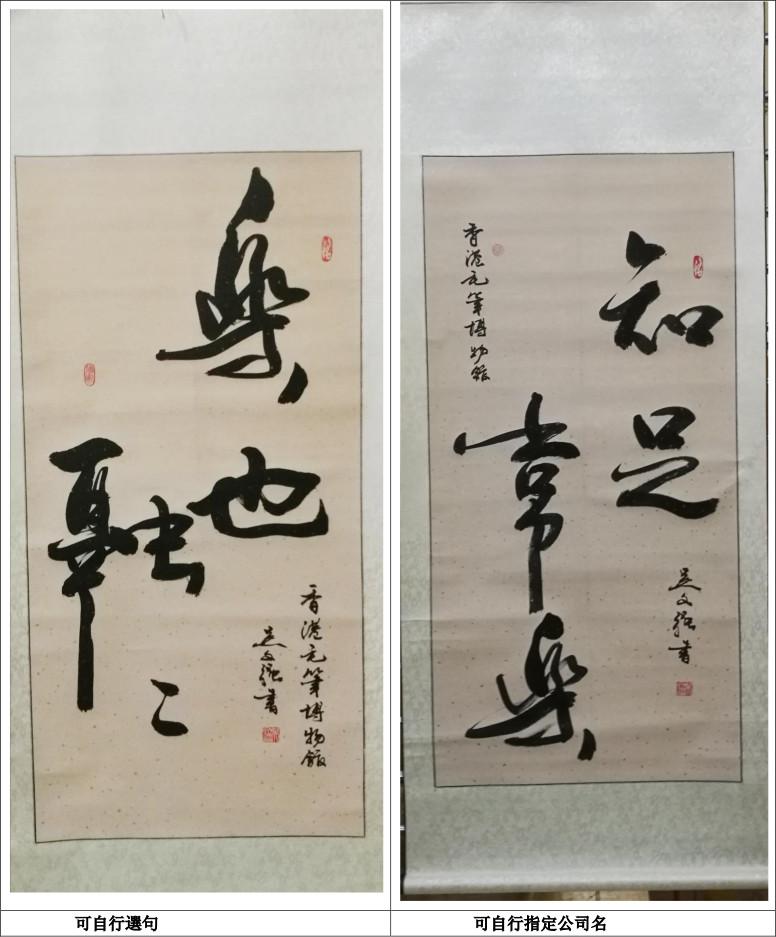 樂也
融々
香港毛筆博物館
吳文強書
知足
常樂
香港毛筆博物館
吳文強書
可自行選句
可自行指定公司名